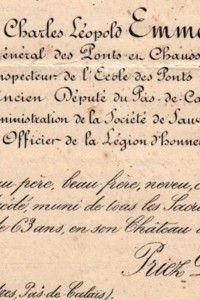 Charles Léopold Emm
énéral des Ponts et Chauss
nspecteur de l'École des Ponts
ncien Député du Pas-de-Ca
ministration de la Société de Sau
Officier de la Légion d'honne
u père, beau frère, neveu,
édé, muni de tous les Sacre
e 63 ans, en son Château
Priez
ues, Pas-de-Calais).